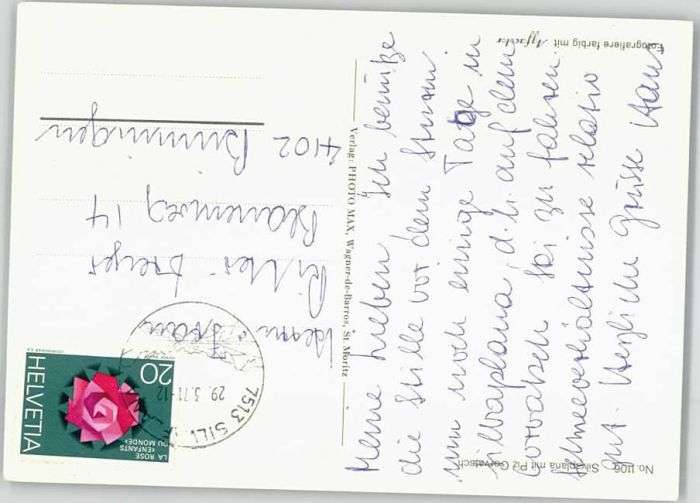 No. 1106 Silvaplana mit Piz Corvatsch
Meine Lieben Ich benütze
die Stille vor dem Sturm
um noch einige Tage in
Silvaplana, d.h. auf dem
Corvatsch Ski zu fahren.
Schneeverhältnisse relativ
gut. Herzliche Grüsse Hans
Verlag: PHOTO MAX, Wagner-de-Barros, St. Moritz
Fotografiere farbig mit
HELVETIA
20
LA ROSE
«ENFANTS
DU MONDE»
7513 SILV
29. 3. 71-12
Herrn + Frau
Blauenweg 14
4102 Binningen